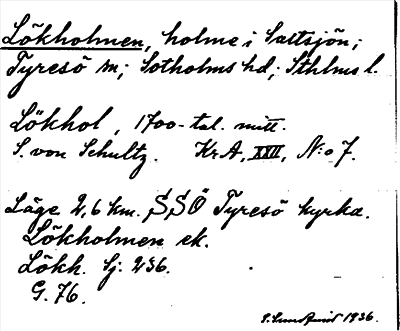 Lökholmen, holme i Saltsjön;
Tyresö sn; Sotholms hd; Sthlms l.
Lökhol, 1700-tal. mitt.
S. von Schultz. Kr A, XXII, N:o 7.
Läge 2,6 km. SSÖ Tyresö kyrka.
Lökholmen ek.
Lökh. Sj. 236.
G. 76.
1936.